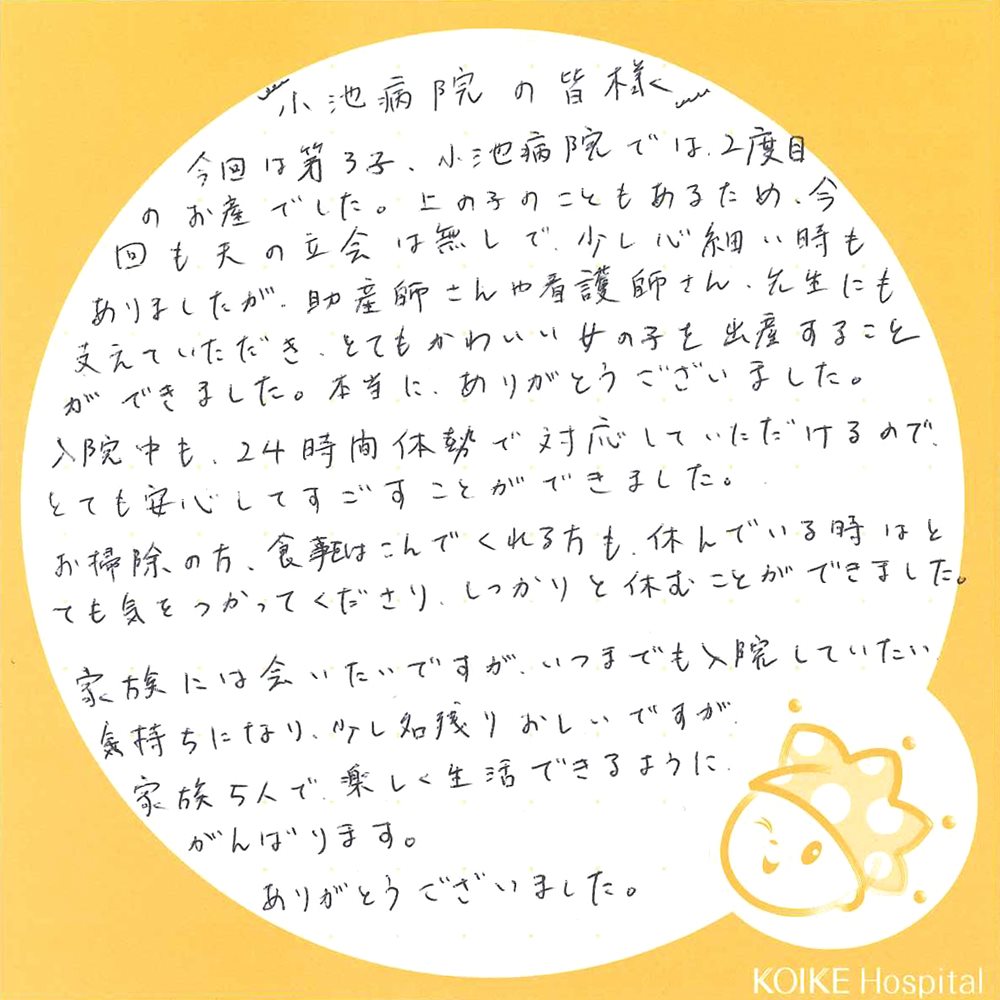 小池病院の皆様へ
今回は第3子、小池病院では、2度目
のお産でした。上の子のこともあるため、今
回も夫の立会は無しで、少し心細い時も
ありましたが、助産師さんや看護師さん、先生にも
支えていただき、とてもかわいい女の子を出産すること
ができました。本当に、ありがとうございました。
入院中も、24時間体勢で対応していただけるので、
とても安心してすごすことができました。
お掃除の方、食事はこんでくれる方も、休んでいる時はと
ても気をつかってくださり、しっかりと休むことができました。
家族には会いたいですが、いつまでも入院していたい
気持ちになり、少し名残りおしいですが、
家族5人で、楽しく生活できるように
がんばります。
ありがとうございました。
KOIKE Hospital